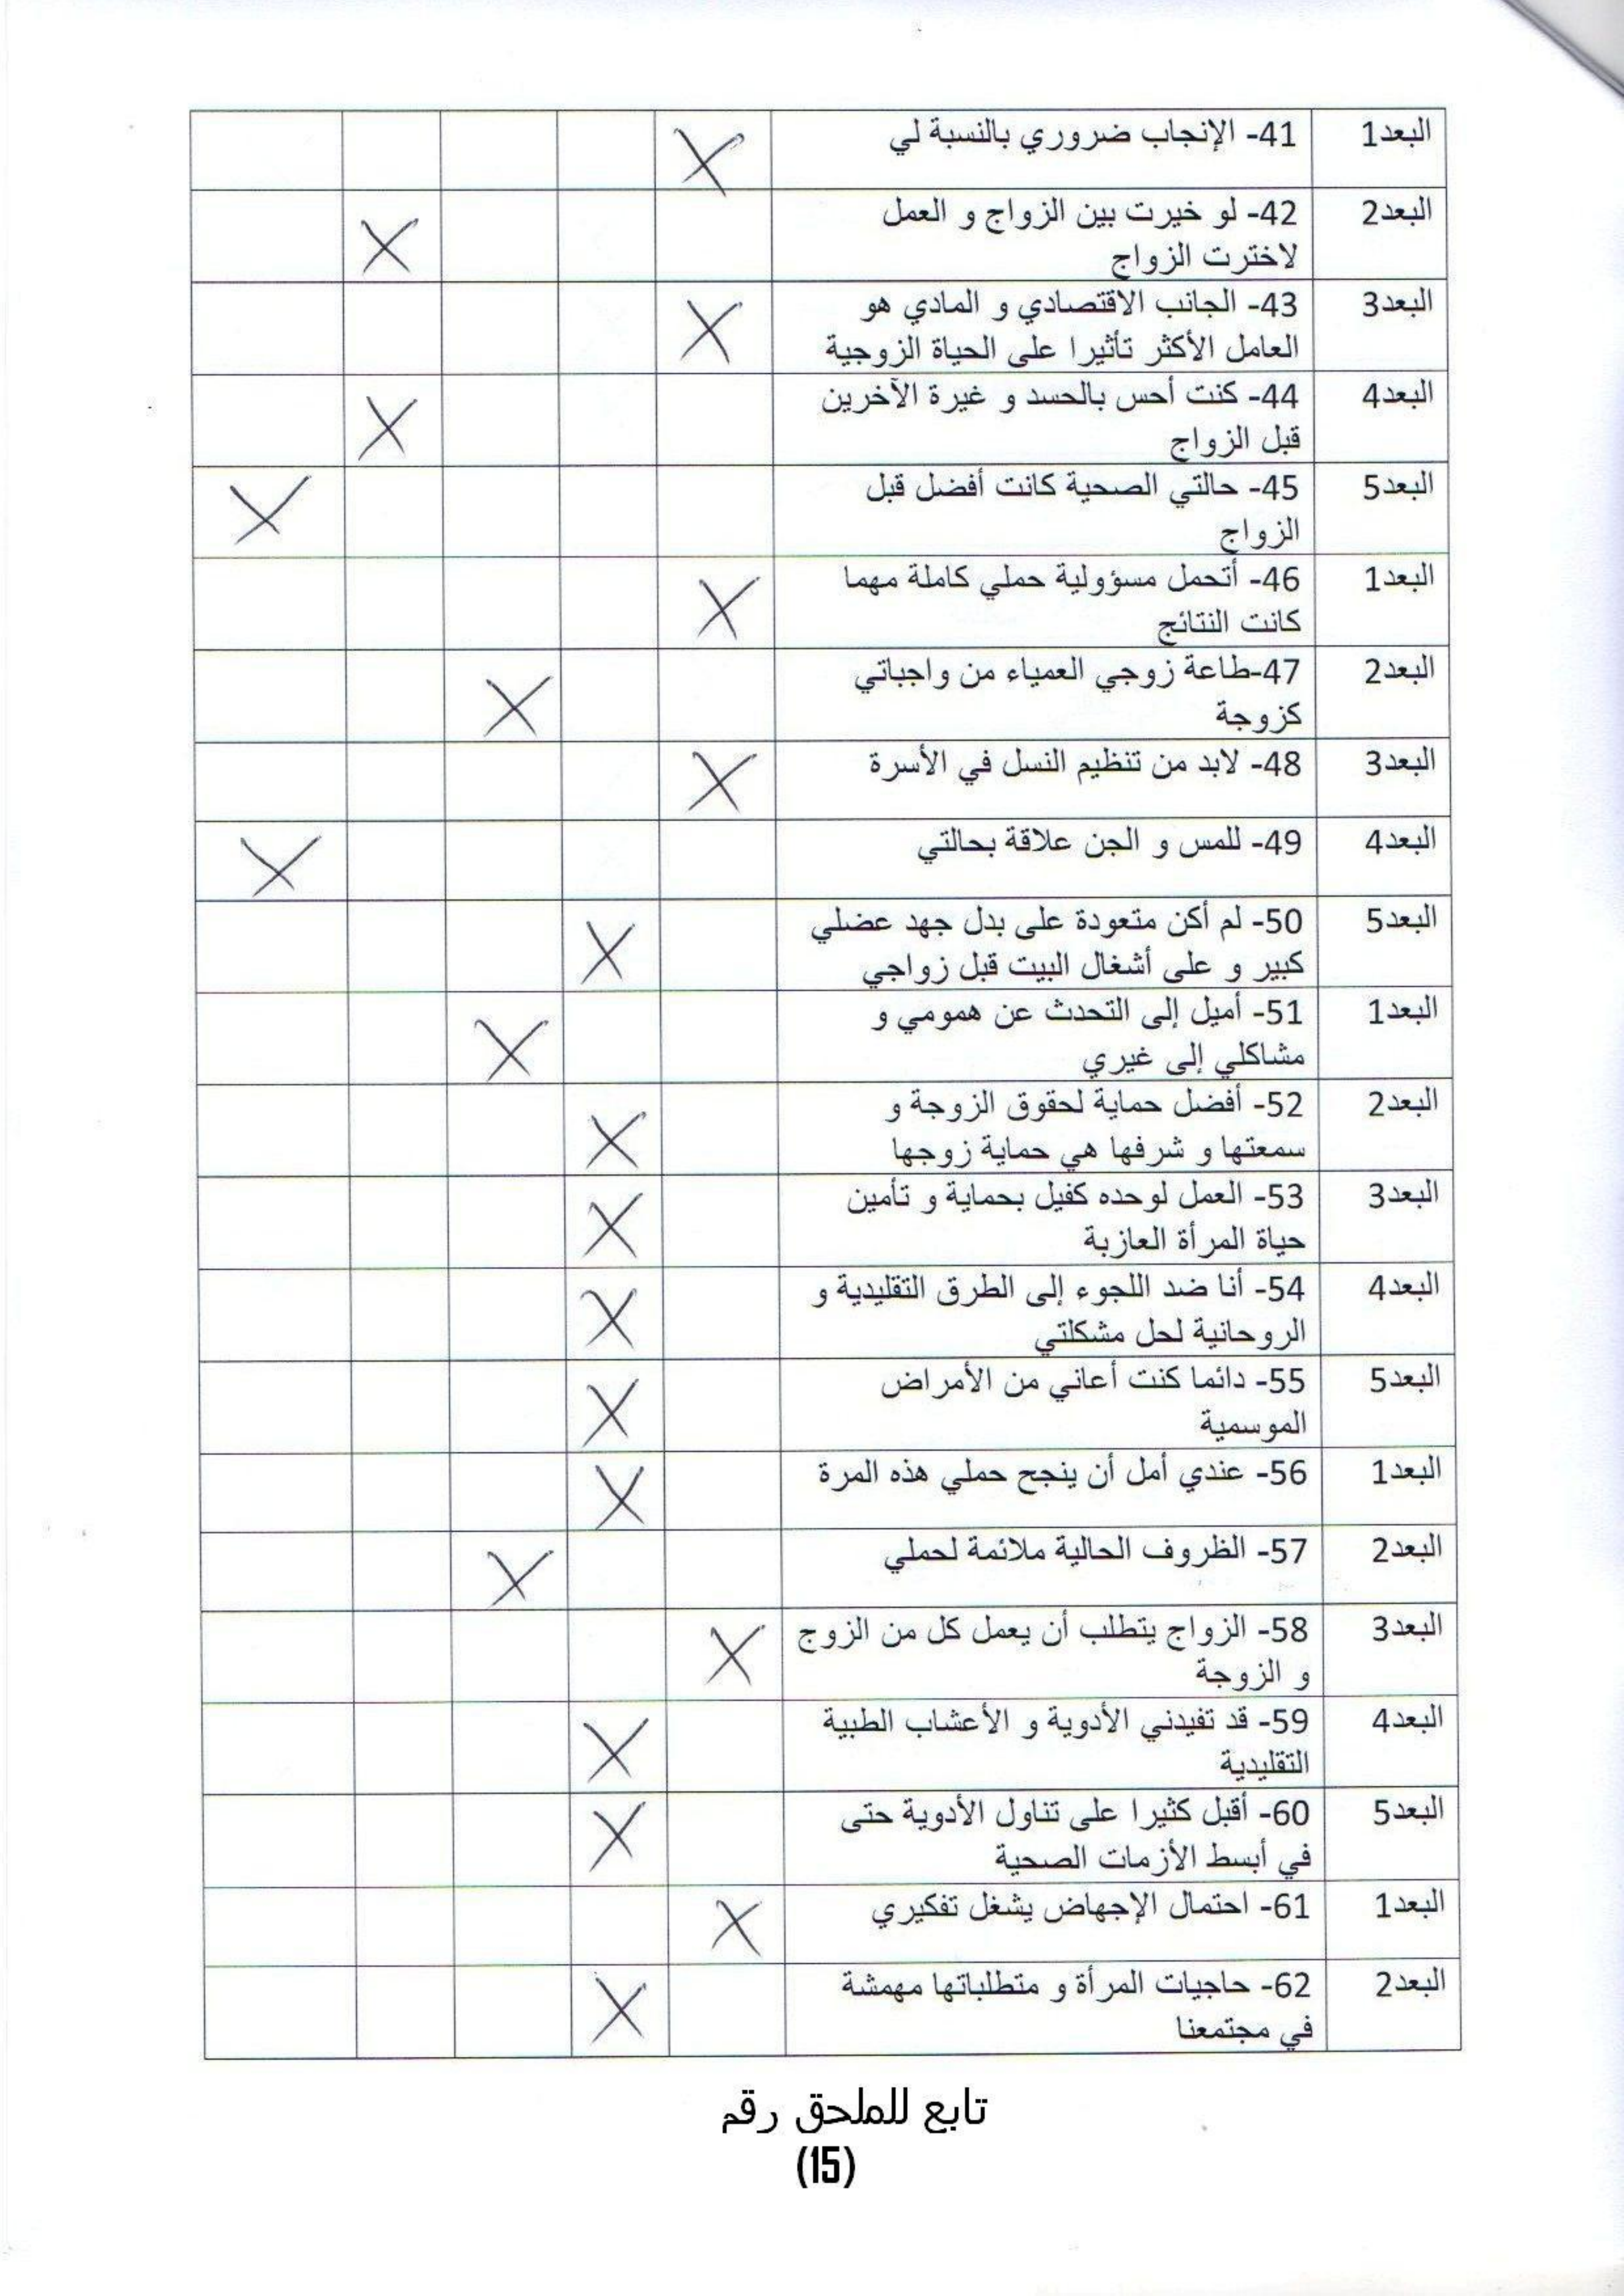 البعد1 41- الإنجاب ضروري بالنسبة لي X
البعد2 42- لو خيرت بين الزواج و العمل
لاخترت الزواج X
البعد3 43- الجانب الاقتصادي و المادي هو
العامل الأكثر تأثيرا على الحياة الزوجية X
البعد4 44- كنت أحس بالحسد و غيرة الآخرين
قبل الزواج X
البعد5 45- حالتي الصحية كانت أفضل قبل
الزواج X
البعد1 46- أتحمل مسؤولية حملي كاملة مهما
كانت النتائج X
البعد2 47-طاعة زوجي العمياء من واجباتي
كزوجة X
البعد3 48- لابد من تنظيم النسل في الأسرة X
البعد4 49- للمس و الجن علاقة بحالتي X
البعد5 50- لم أكن متعودة على بدل جهد عضلي
كبير و على أشغال البيت قبل زواجي X
البعد1 51- أميل إلى التحدث عن همومي و
مشاكلي إلى غيري X
البعد2 52- أفضل حماية لحقوق الزوجة و
سمعتها و شرفها هي حماية زوجها X
البعد3 53- العمل لوحده كفيل بحماية و تأمين
حياة المرأة العازبة X
البعد4 54- أنا ضد اللجوء إلى الطرق التقليدية و
الروحانية لحل مشكلتي X
البعد5 55- دائما كنت أعاني من الأمراض
الموسمية X
البعد1 56- عندي أمل أن ينجح حملي هذه المرة X
البعد2 57- الظروف الحالية ملائمة لحملي X
البعد3 58- الزواج يتطلب أن يعمل كل من الزوج
و الزوجة X
البعد4 59- قد تفيدني الأدوية و الأعشاب الطبية
التقليدية X
البعد5 60- أقبل كثيرا على تناول الأدوية حتى
في أبسط الأزمات الصحية X
البعد1 61- احتمال الإجهاض يشغل تفكيري X
البعد2 62- حاجيات المرأة و متطلباتها مهمشة
في مجتمعنا X
تابع للملحق رقم
(15)